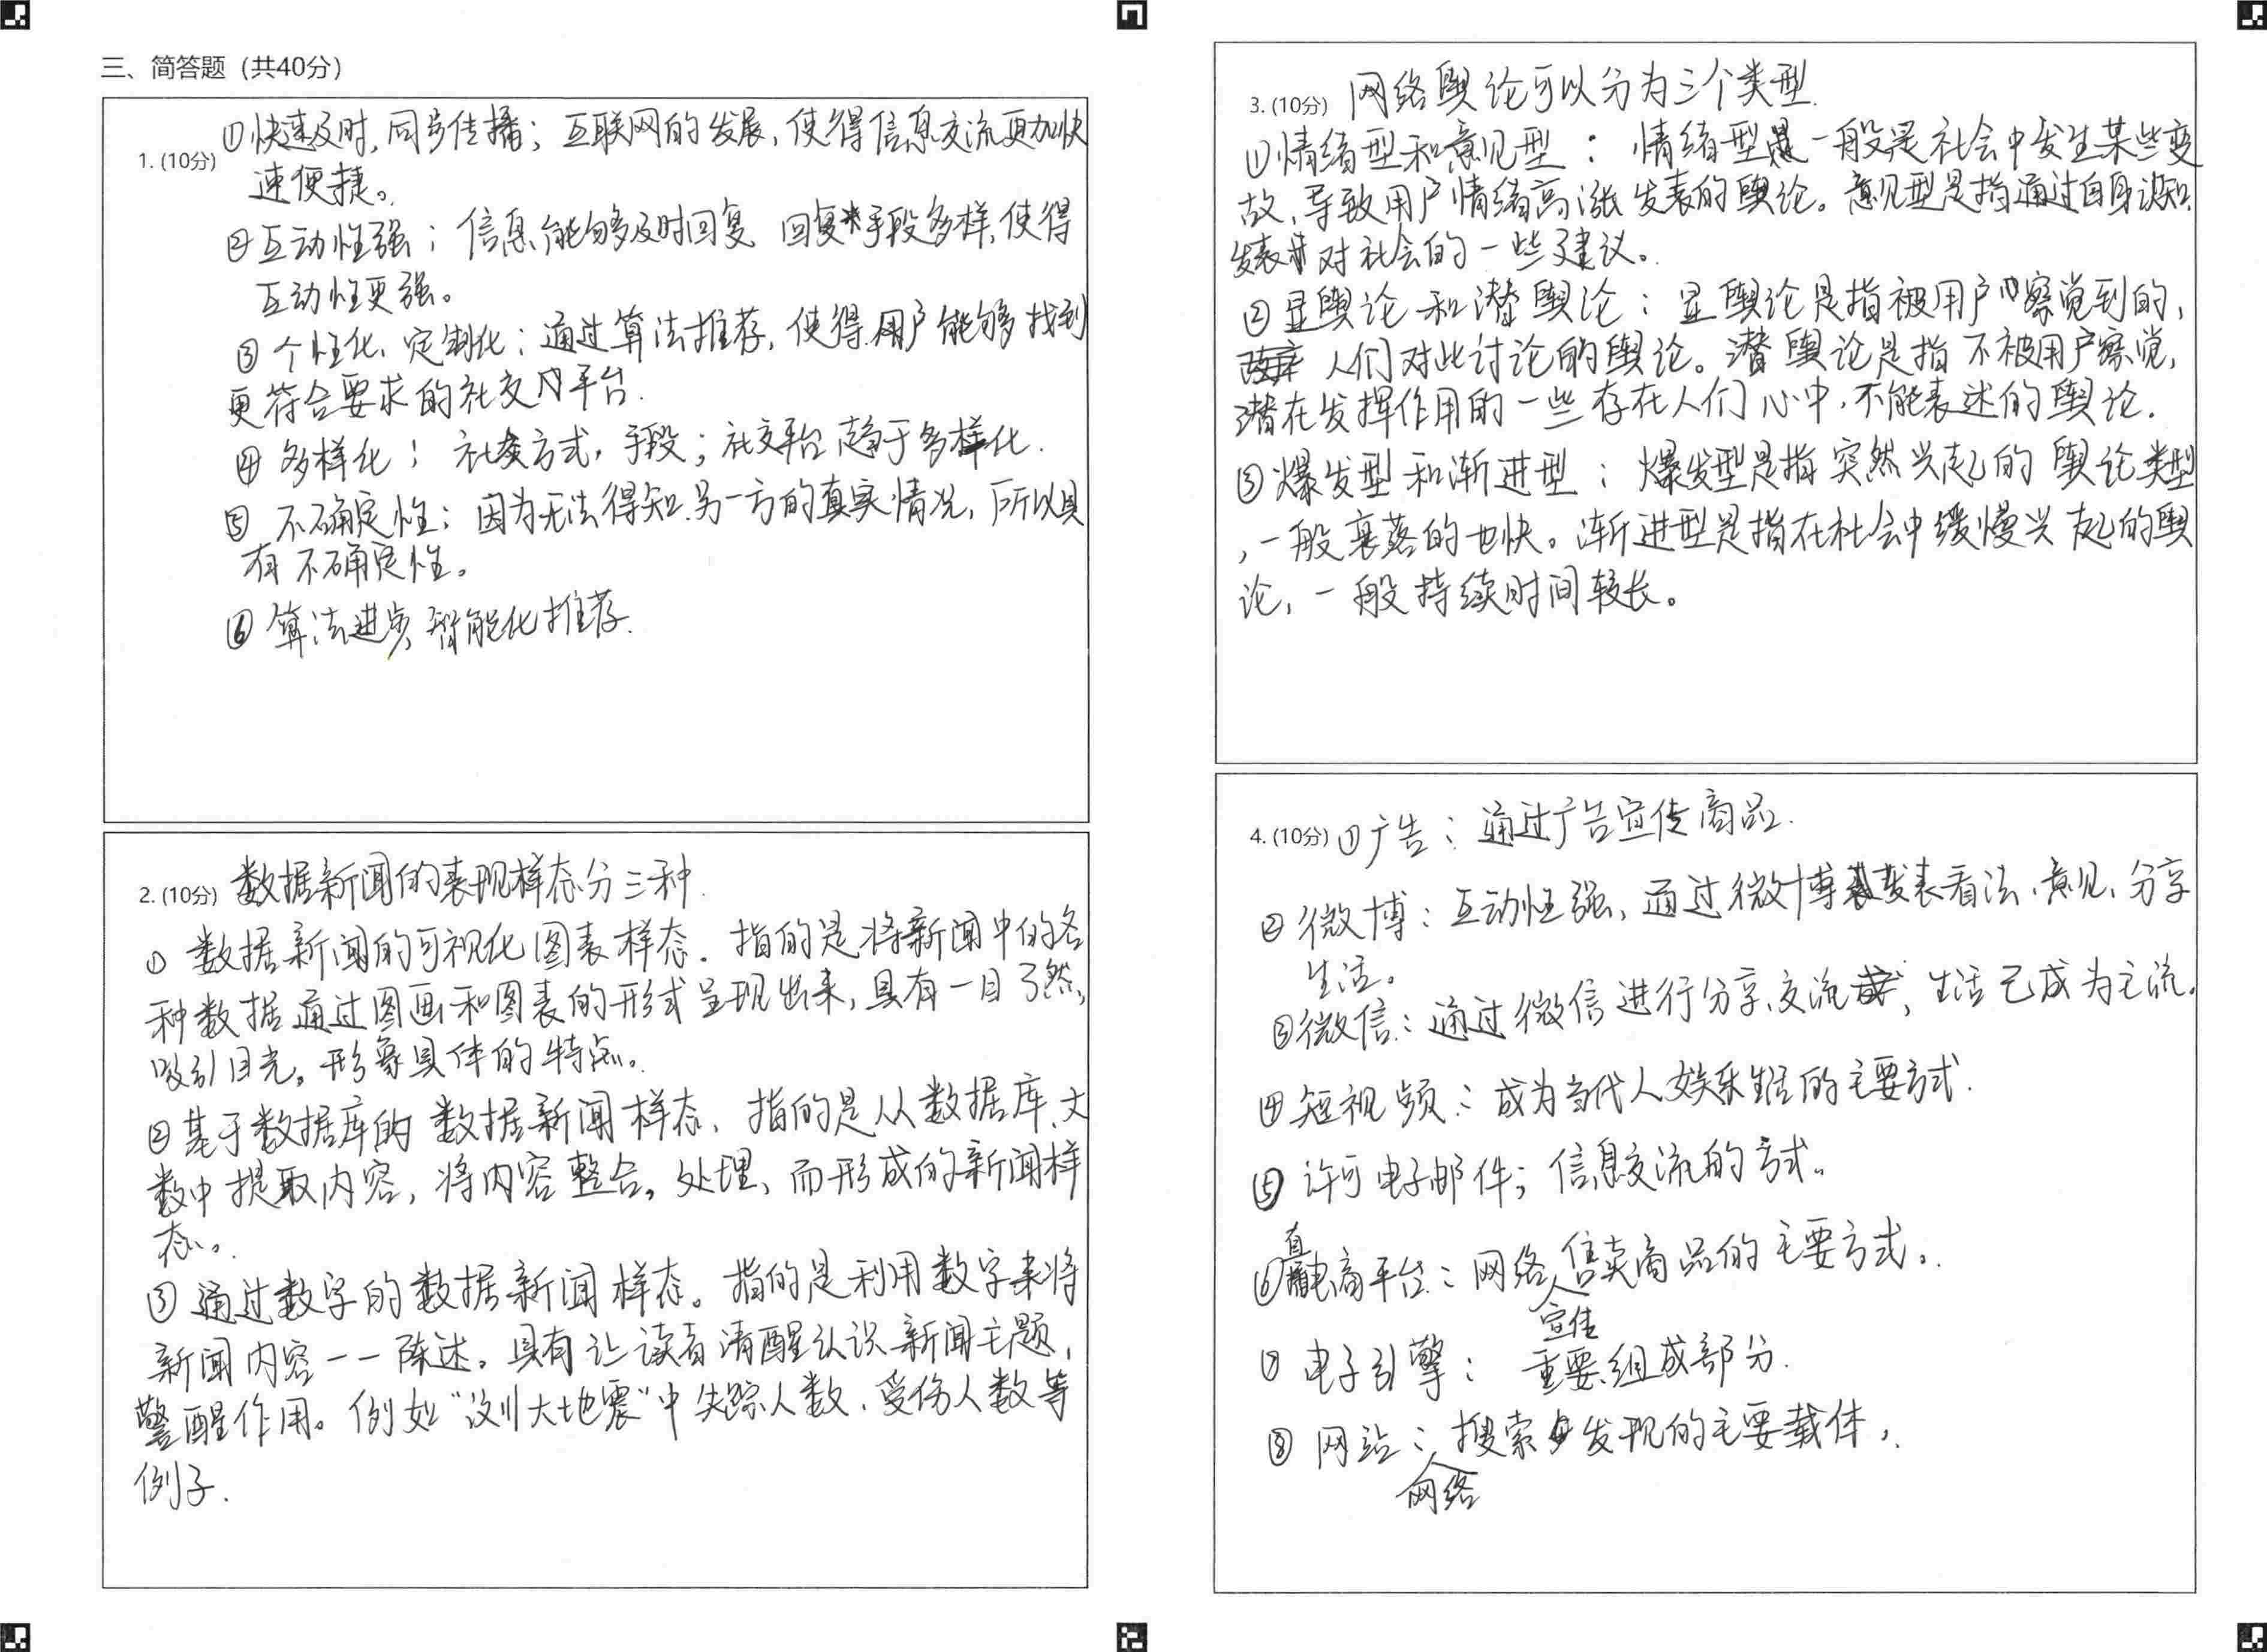 三、简答题（共40分）
1. (10分) ①快速及时,同步传播；互联网的发展,使得信息交流更加快
速便捷。
②互动性强；信息能够及时回复 回复手段多样,使得
互动性更强。
③个性化、定制化：通过算法推荐,使得用户能够找到
更符合要求的社交平台.
④多样化：社交方式,手段；社交平台趋于多样化.
⑤不确定性：因为无法得知另一方的真实情况,所以具
有不确定性。
⑥算法进步,智能化推荐.
2. (10分) 数据新闻的表现样态分三种.
①数据新闻的可视化图表样态.指的是将新闻中的各
种数据通过图画和图表的形式呈现出来,具有一目了然、
吸引目光。形象具体的特点。
②基于数据库的数据新闻样态、指的是从数据库、文
数中提取内容,将内容整合。处理、而形成的新闻样
态。
③通过数字的数据新闻样态。指的是利用数字来将
新闻内容一一陈述。具有让读者清醒认识新闻主题,
警醒作用。例如“汶川大地震”中失踪人数、受伤人数等
例子.
3. (10分) 网络舆论可以分为三个类型.
①情绪型和意见型：情绪型一般是社会中发生某些变
故,导致用户情绪高涨发表的舆论。意见型是指通过自身认知
发表对社会的一些建议。
②显舆论和潜舆论：显舆论是指被用户察觉到的,
人们对此讨论的舆论。潜舆论是指不被用户察觉,
潜在发挥作用的一些存在人们心中,不能表述的舆论.
③爆发型和渐进型：爆发型是指突然兴起的舆论类型
,一般衰落的也快。渐进型是指在社会中缓慢兴起的舆
论,一般持续时间较长。
4. (10分) ①广告：通过广告宣传商品.
②微博：互动性强,通过微博发表看法、意见、分享
生活。
③微信：通过微信进行分享、交流,生活已成为主流.
④短视频：成为当代人娱乐生活的主要方式.
⑤许可电子邮件；信息交流的方式。
⑥直电商平台：网络宣传售卖商品的主要方式。
⑦电子引擎：重要组成部分.
⑧网站：网络搜索发现的主要载体,